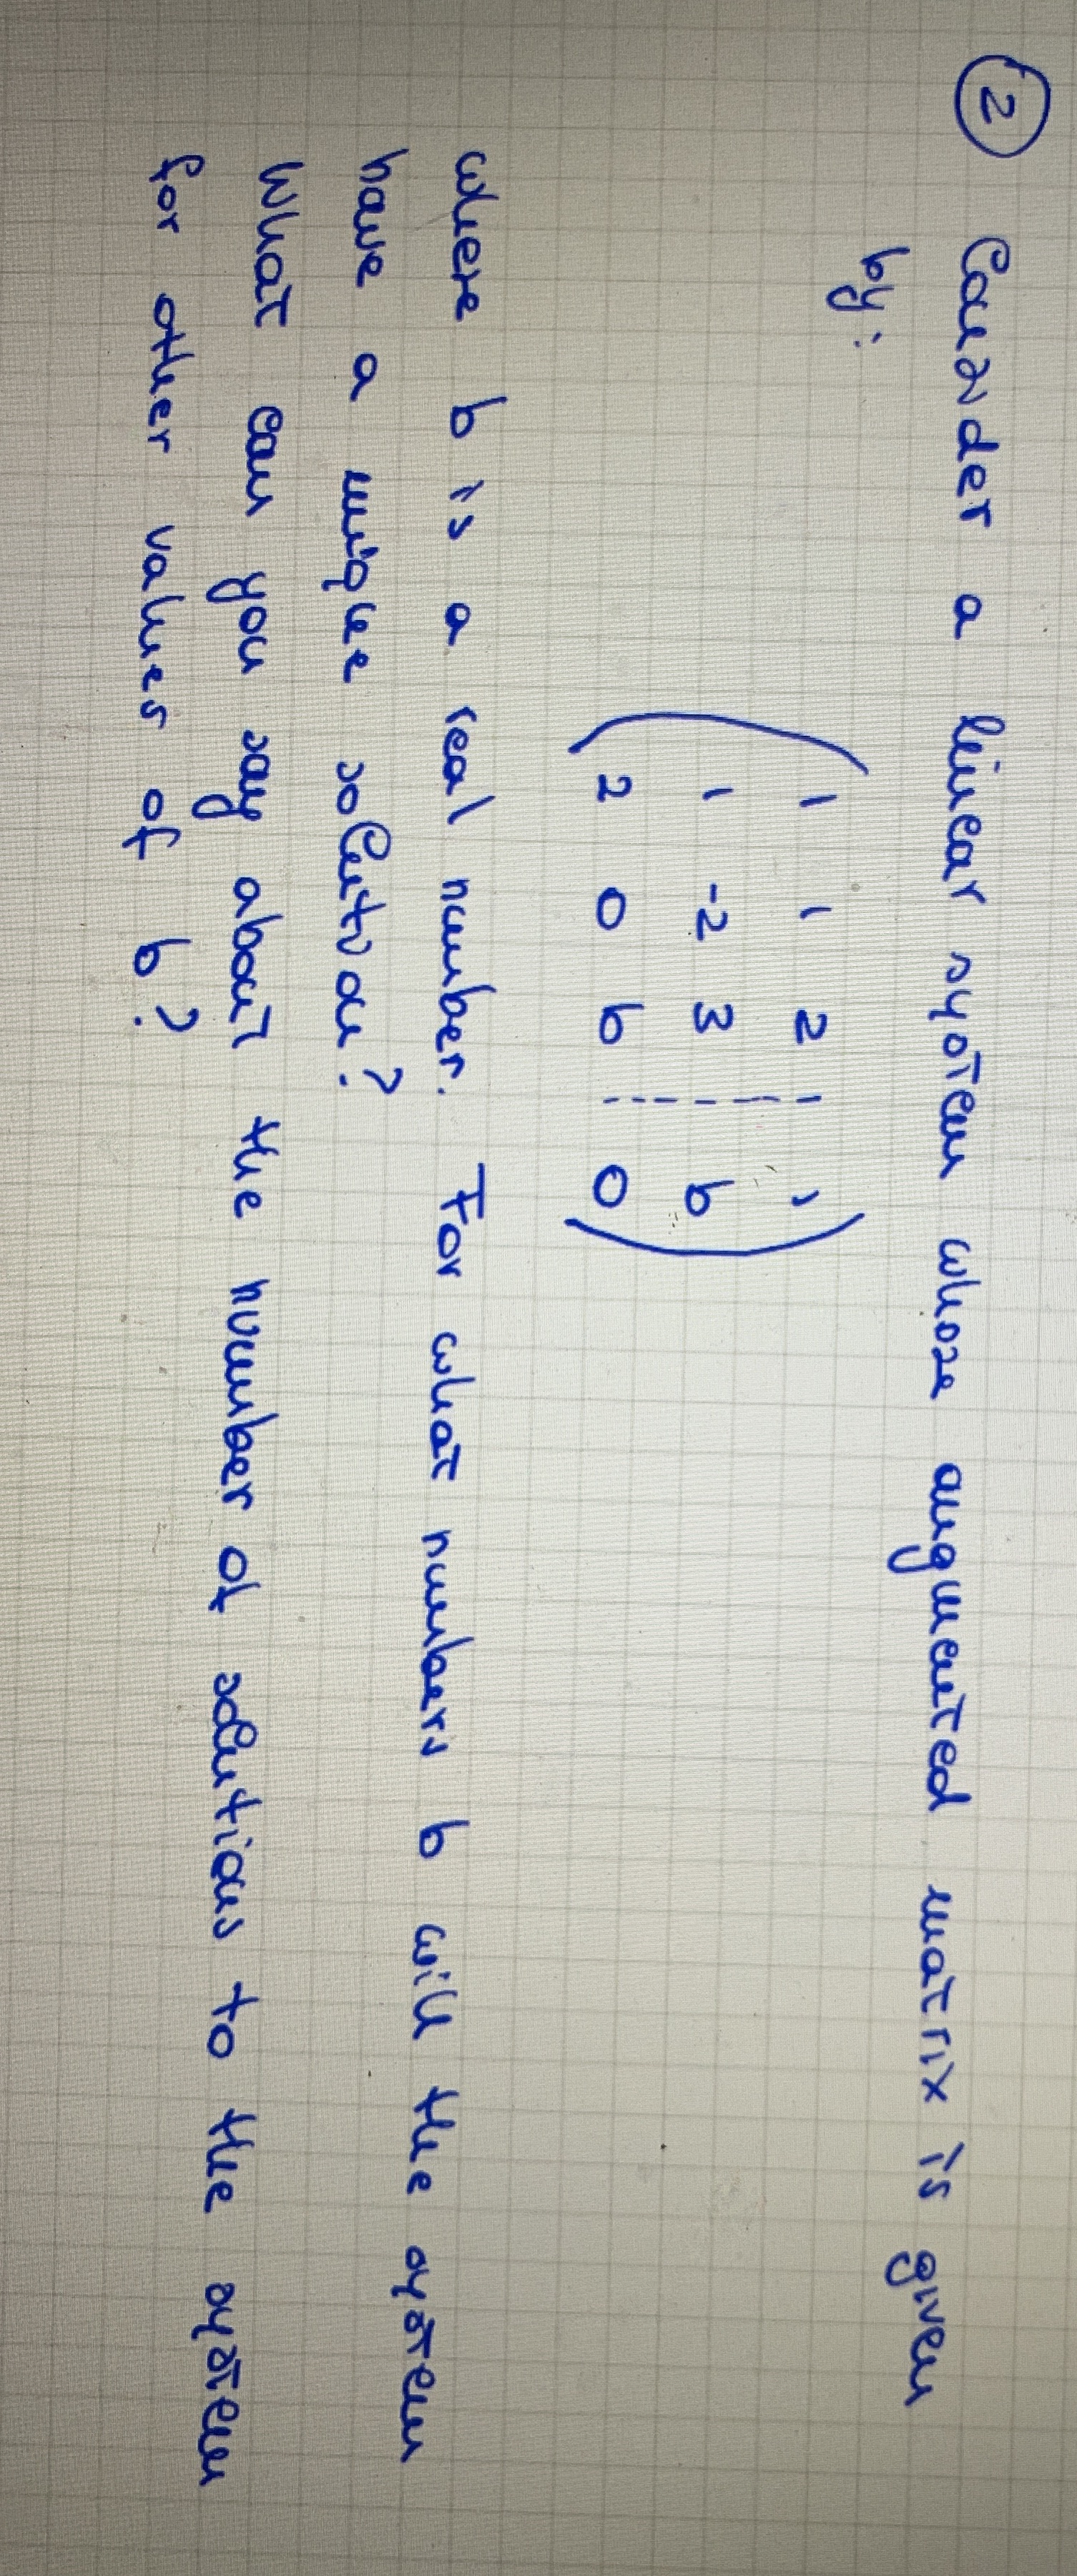 2 Consider a linear system whose augmented matrix is given
by:
1 1 2 1
1 -2 3 b
2 0 b 0
where b is a real number. For what numbers b will the system
have a unique solution?
What can you say about the number of solutions to the system
for other values of b?